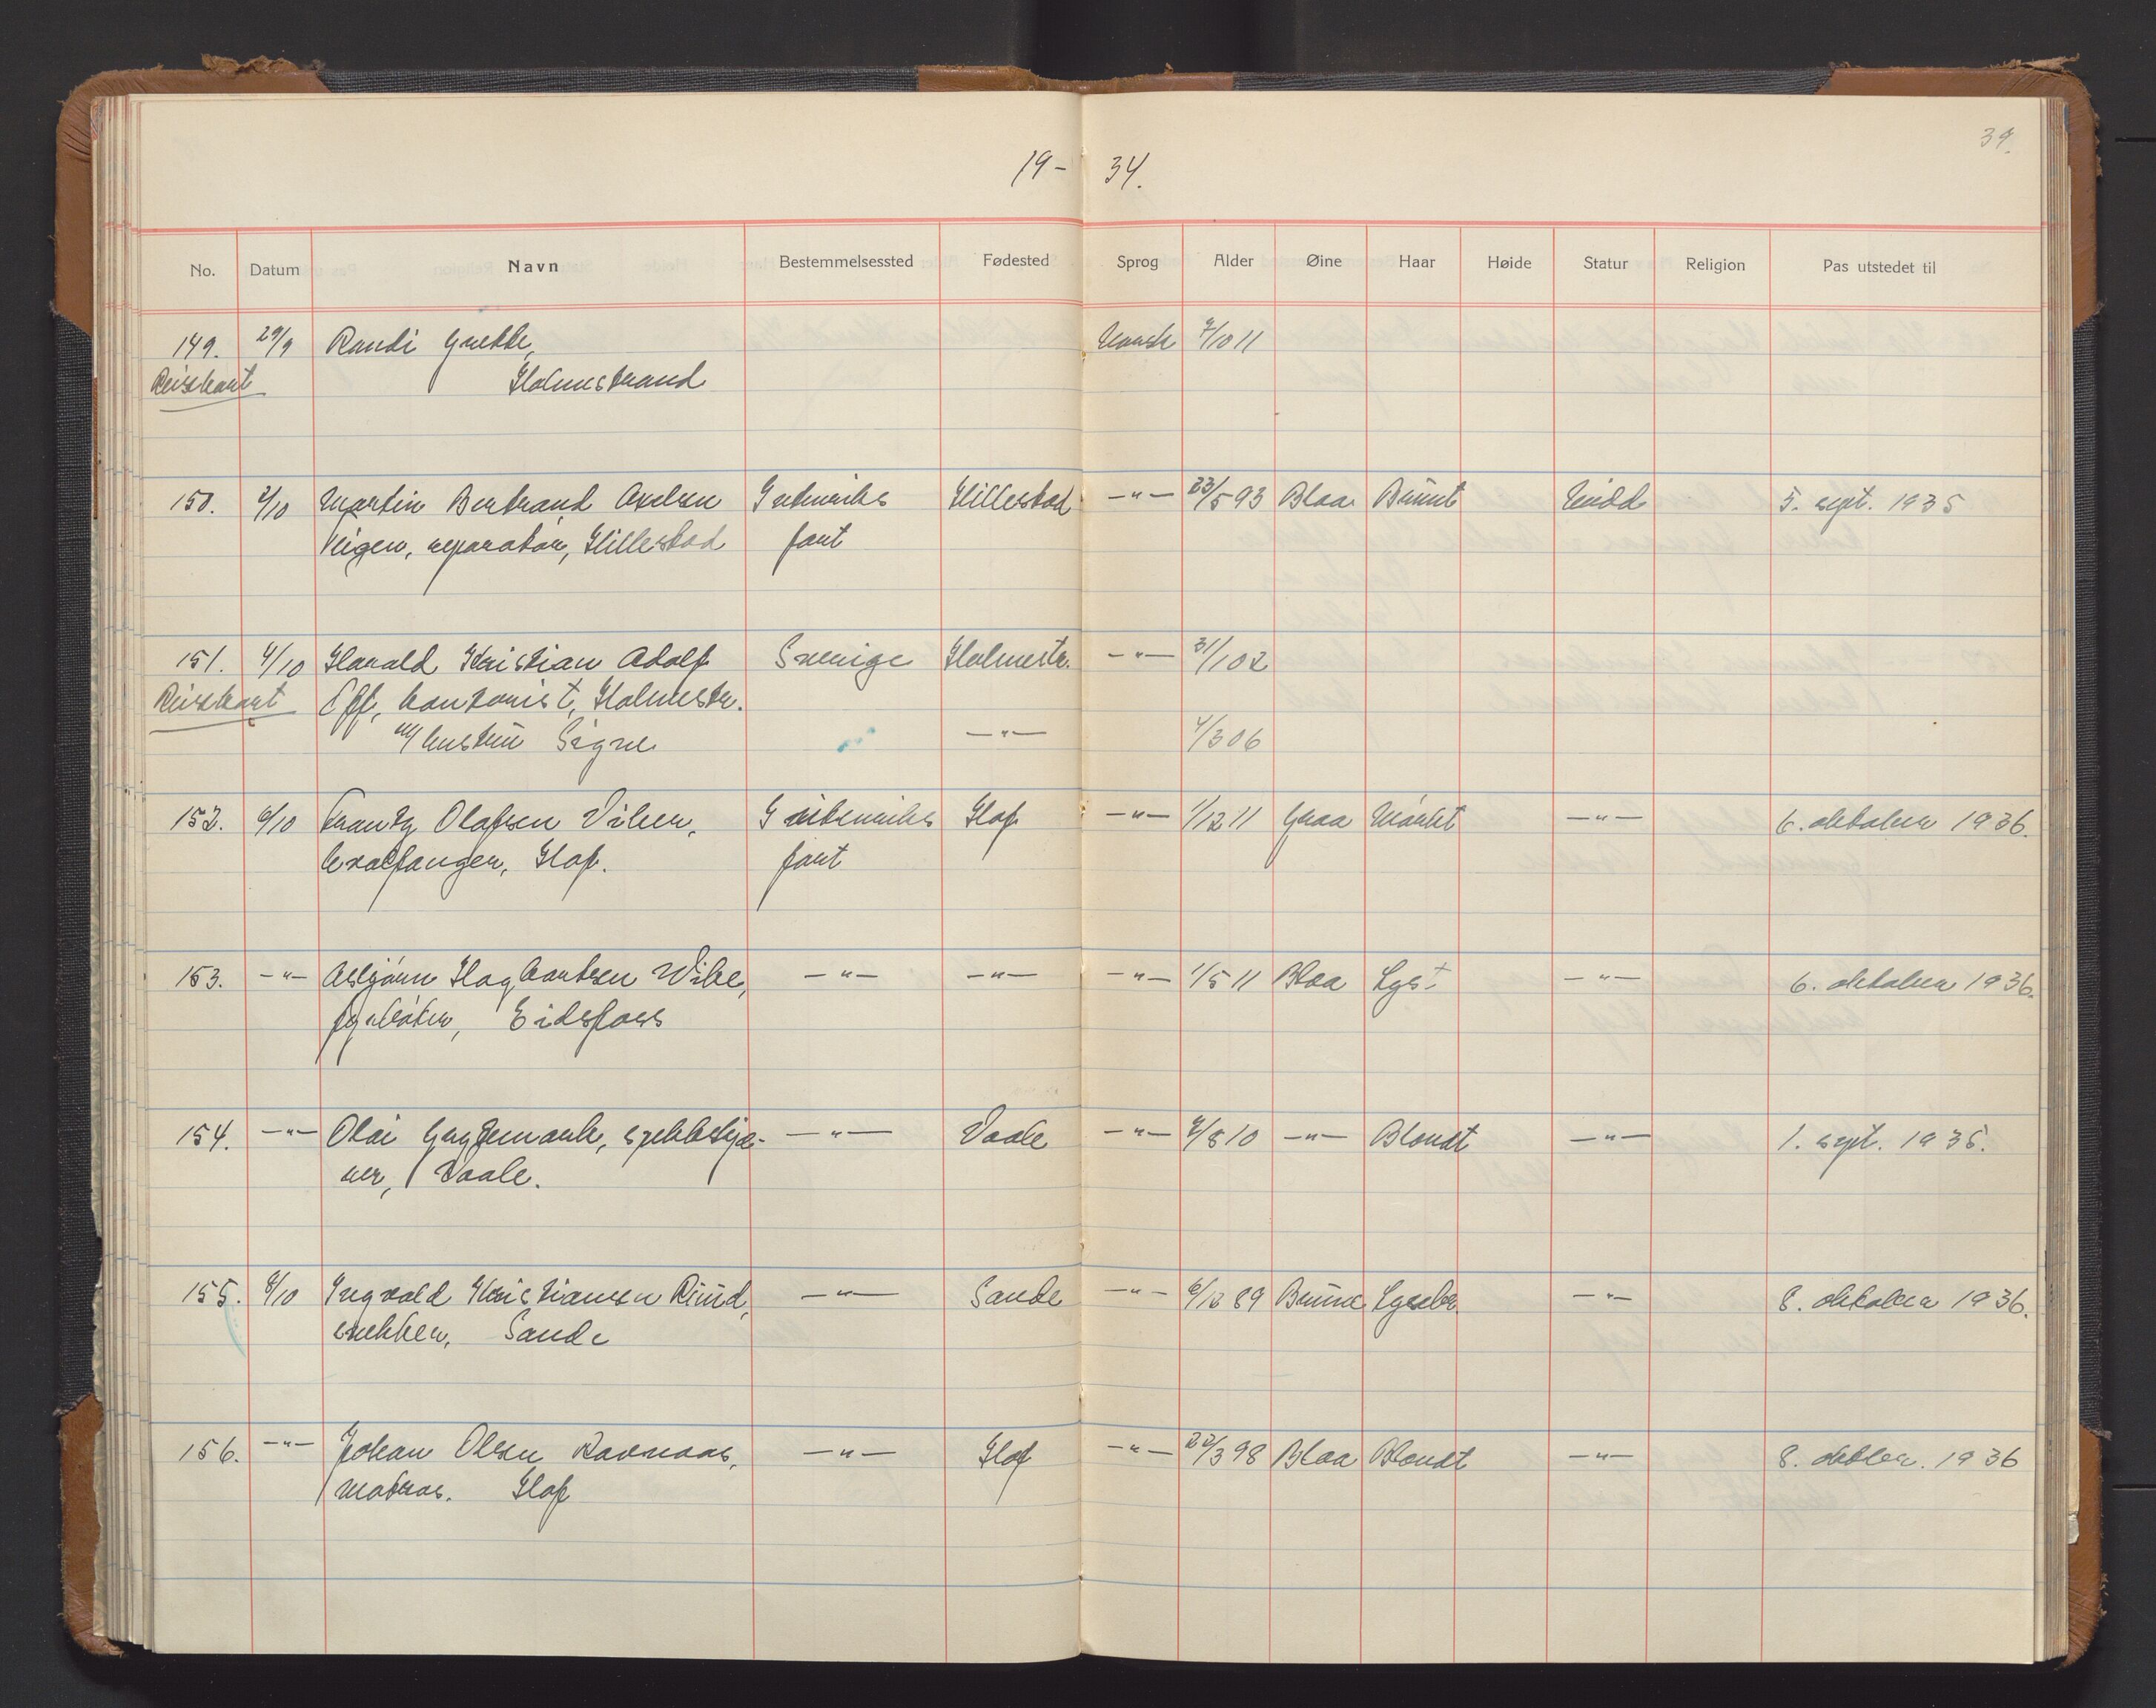 34.
19- 34.
No. Datum Navn Bestemmelsessted Fødested Sprog Alder Øine Haar Høide Statur Religion Pas utstedet til
149. 29/9 Randi Norsk 7/10 11
Reisekort Holmestrand
150. 2/10 Martin Bertrand Axelsen Utenriks Hillestad -"- 23/5 93 Blaa Brunt Midd 5. sept. 1935
Teigen, reparatør, Hillestad fart
151. 4/10 Harald Kristian Adolf Sverige Holmestr. -"- 31/1 02
Reisekort Eff, kontorist, Holmestr.
m/ hustru Signe -"- 4/3 06
152. 6/10 Frantz Olafsen Viken, Utenriks Hof -"- 1/12 11 Graa Mørkt -"- 6. oktober 1936.
hvalfanger, Hof. fart
153. -"- Asbjørn Hagbartsen Wike, -"- -"- -"- 1/5 11 Blaa Lyst -"- 6. oktober 1936.
fyrbøter, Eidsfoss
154. -"- Olai spekkskjæ- -"- Vaale -"- 4/8 10 -"- Blondt -"- 1. sept. 1935.
rer, Vaale.
155. 8/10 Ingvald Kristiansen Rüüd, -"- Sande -"- 6/12 89 Brune Lysebr. -"- 8. oktober 1936.
snekker, Sande
156. -"- Johan Olsen Ravnaas, -"- Hof -"- 22/3 98 Blaa Blondt -"- 8. oktber. 1936
matros. Hof